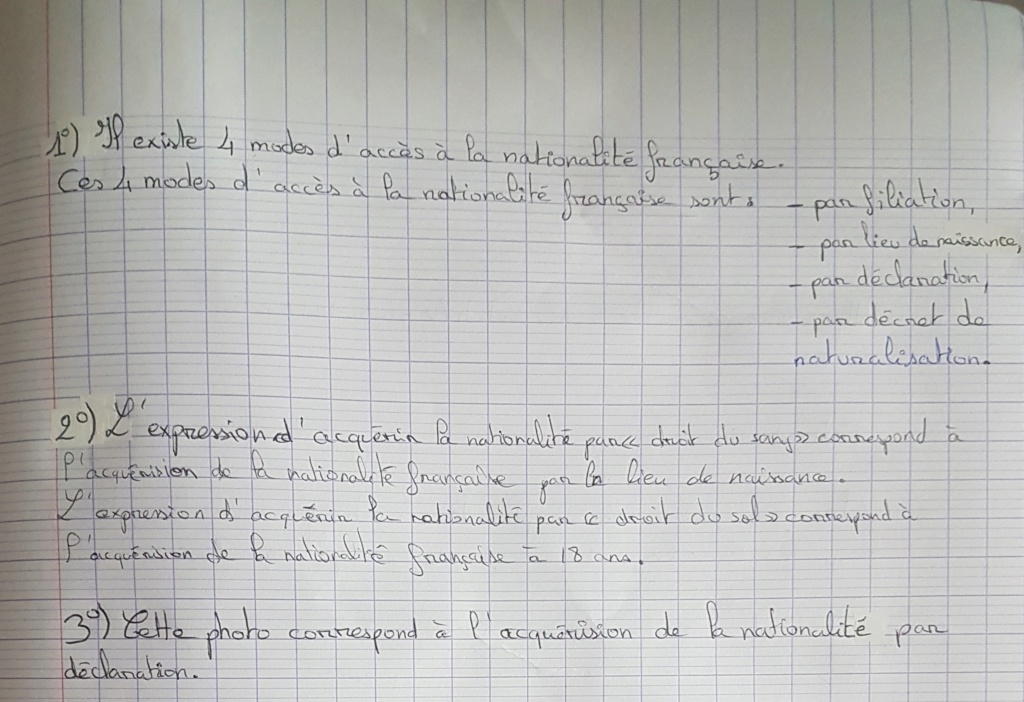 1°) Il existe 4 modes d'accès à la nationalité française.
Ces 4 modes d'accès à la nationalité française sont : - par filiation,
- par lieu de naissance,
- par déclaration,
- par décret de
naturalisation.
2°) L'expression d'acquérir la nationalité par << droit du sang >> correspond à
l'acquérision de la nationalité française par la lieu de naissance.
L'expression d'acquérir la nationalité par << droit du sol >> correspond à
l'acquérision de la nationalité française à 18 ans.
3°) Cette photo correspond à l'acquérision de la nationalité par
déclaration.